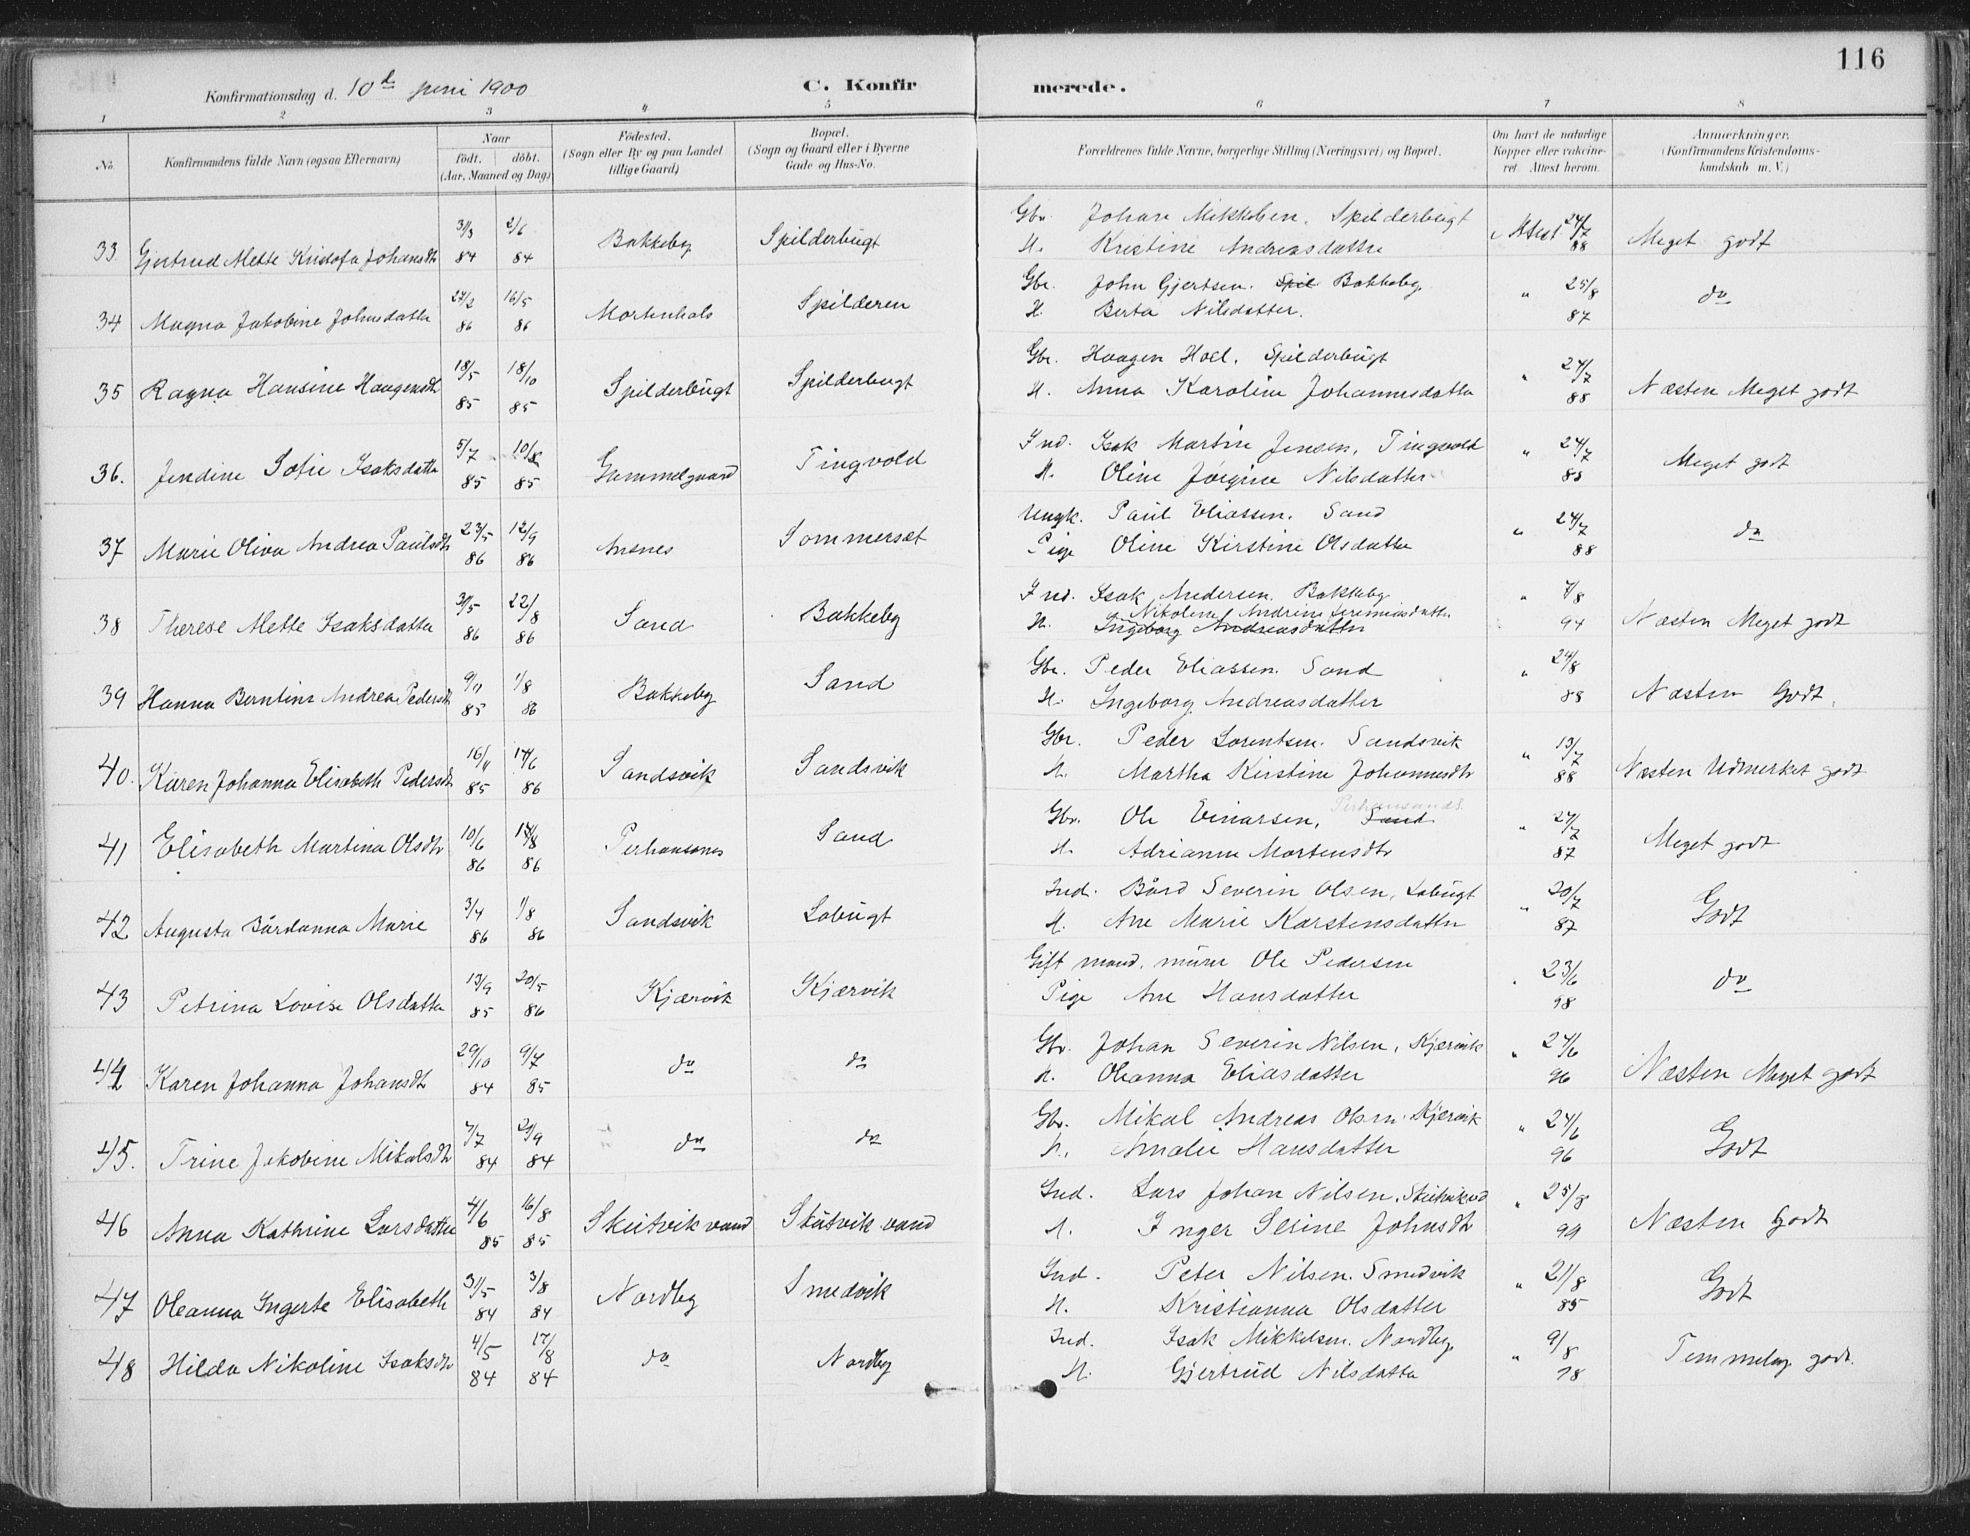 116
Konfirmationsdag d. 10de juni 1900 C. Konfirmerede.
1 2 3 4 5 6 7 8
No. Konfirmandens fulde Navn (ogsaa Efternavn) Naar födt. döbt. (Aar, Maaned og Dag) Födested. (Sogn eller By og paa Landet tillige Gaard) Bopæl. (Sogn og Gaard eller i Byerne Gade og Hus-No. Forældrenes fulde Navne, borgerlige Stilling (Næringsvei) og Bopæl. Om havt de naturlige Kopper eller vakcineret. Attest herom. Anmærkninger. (Konfirmandens Kristendomskundskab m. V.)
33. Gjertrud Mette Kristofa Johansdtr 3/3 84 2/6 84 Bakkeby Spilderbugt Gbr. Johan Mikkelsen. Spilderbugt H. Kristine Andreasdatter Attest 24/7 88 Meget godt
34 Magna Jakobine Johnsdatter 27/2 86 16/5 86 Mortenhals Spilderen Gbr. John Gjertsen. Spil Bakkeby H. Berta Nilsdatter. " 25/8 87 do
35 Ragna Hansine Haagensdtr 18/5 85 18/10 85 Spilderbugt Spilderbugt Gbr. Haagen Hoel. Spilderbugt H. Anna Karoline Johannesdatter " 24/7 88 Næsten Meget godt
36. Jendine Sofie Isaksdatter 5/7 85 10/8 85 Gammelgaard Tingvold Ind. Isak Martin Jensen, Tingvold H. Oline Jørgine Nilsdatter " 24/7 88 Meget godt
37 Marie Oliva Andrea Paulsdtr 23/5 86 12/9 86 Ansnes Sommersæt Ungk. Paul Eliassen. Sand Pige Oline Kirstine Olsdatter " 24/7 88 do
38 Therese Mette Isaksdatter 31/5 86 22/8 86 Sand Bakkeby Ind. Isak Andersen. Bakkeby H. Nikoline Andrine Jeremiasdatter Ingeborg Andreasdatter " 7/8 94 Næsten Meget godt
39 Hanna Berntine Andrea Pedersdtr 9/11 85 1/8 86 Bakkeby Sand Gbr. Peder Eliassen. Sand H. Ingeborg Andreasdatter " 24/8 88 Næsten Godt.
40. Karen Johanna Elisabeth Pedersdtr 16/11 85 14/6 86 Sandsvik Sandsvik Gbr. Peder Lorentsen. Sandsvik H. Martha Kirstine Johannesdtr " 13/7 88 Næsten Udmerket godt
41 Elisabeth Martina Olsdtr 10/6 86 14/8 86 Perhansnes Sand Gbr. Ole Einarsen, Sand H. Adrianne Mortensdtr " 24/7 87 Meget godt
42 Augusta Bårdanna Marie 3/4 86 1/8 86 Sandsvik Løbugt Ind. Bård Severin Olsen, Løbugt H. Ane Marie Karstensdatter " 20/7 87 Godt
43 Petrina Lovise Olsdatter 13/9 85 20/5 86 Kjærvik Kjærvik Gift mand, murer Ole Pedersen Pige Ane Hansdatter " 23/6 98 do
44 Karen Johanna Johansdtr 29/10 84 9/7 85 do do Gbr. Johan Severin Nilsen, Kjærvik H. Oleanna Eliasdatter " 24/6 96 Næsten Meget godt
45. Trine Jakobine Mikalsdtr 7/7 84 21/9 84 do do Gbr. Mikal Andreas Olsen. Kjærvik H. Amalie Hansdatter " 24/6 96 Godt
46 Anna Kathrine Larsdatter 4/6 85 16/8 85 Skutvikvand Skutvikvand Ind. Lars Johan Nilsen. Skutvikvd H. Inger Serine Johnsdtr " 25/8 99 Næsten Godt
47 Oleanna Ingerte Elisabeth 31/5 84 3/8 84 Nordby Smedvik Ind. Peter Nilsen. Smedvik H. Kristianna Olsdatter " 21/8 85 Godt
48 Hilda Nikoline Isaksdtr 4/5 84 17/8 84 do Nordby Ind. Isak Mikkelsen. Nordby H. Gjertrud Nilsdatter " 9/8 98 Temmelig godt.